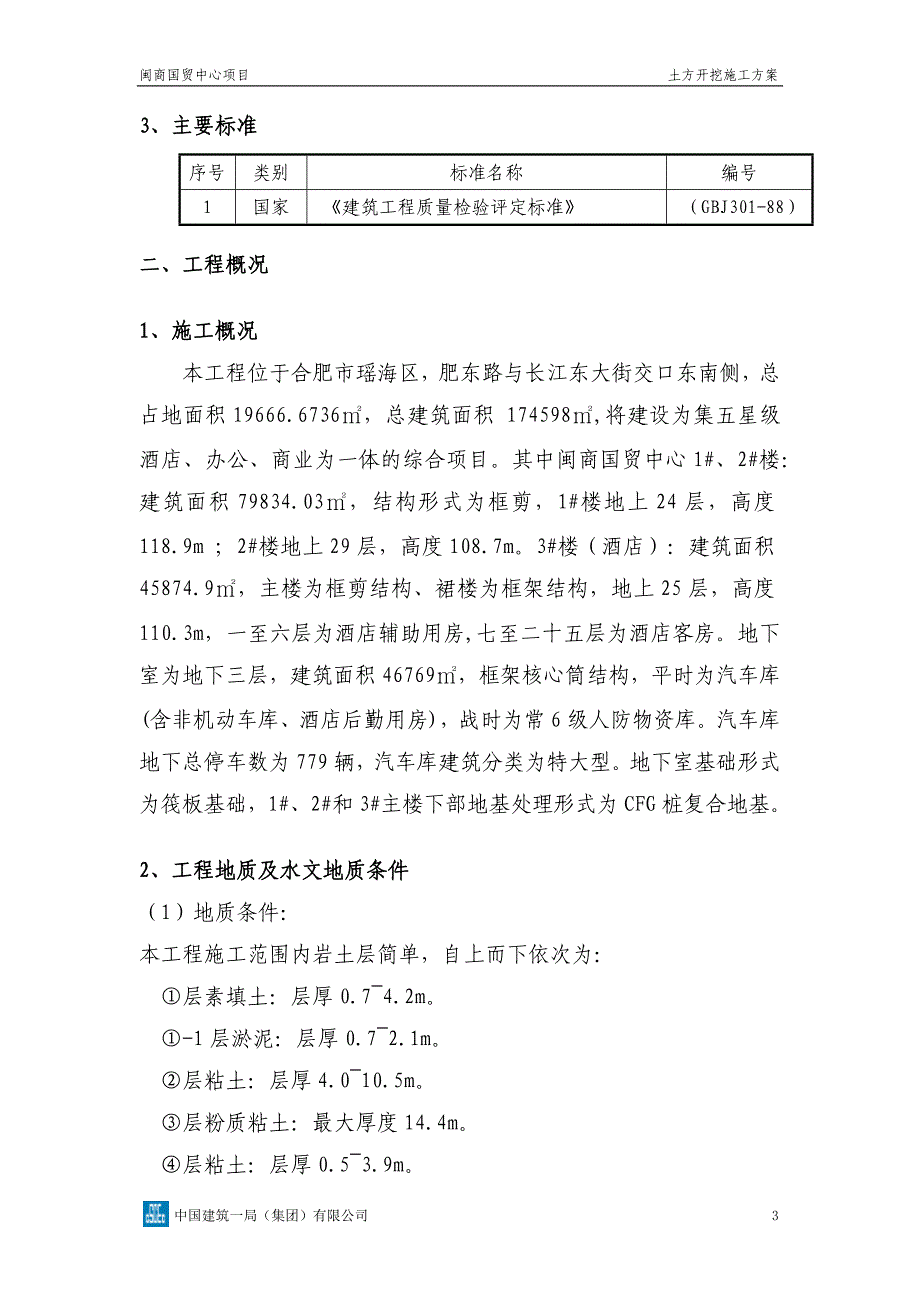 闽商国贸中心项目 土方开挖施工方案
3、主要标准
序号 类别 标准名称 编号
1 国家 《建筑工程质量检验评定标准》 (GBJ301-88)
二、工程概况
1、施工概况
本工程位于合肥市瑶海区，肥东路与长江东大街交口东南侧，总
占地面积 19666.6736㎡，总建筑面积 174598㎡,将建设为集五星级
酒店、办公、商业为一体的综合项目。其中闽商国贸中心 1#、2#楼:
建筑面积 79834.03㎡，结构形式为框剪，1#楼地上 24 层，高度
118.9m ；2#楼地上 29 层，高度 108.7m。3#楼（酒店）：建筑面积
45874.9㎡，主楼为框剪结构、裙楼为框架结构，地上 25 层，高度
110.3m，一至六层为酒店辅助用房,七至二十五层为酒店客房。地下
室为地下三层，建筑面积 46769㎡，框架核心筒结构，平时为汽车库
(含非机动车库、酒店后勤用房)，战时为常 6 级人防物资库。汽车库
地下总停车数为 779 辆，汽车库建筑分类为特大型。地下室基础形式
为筏板基础，1#、2#和 3#主楼下部地基处理形式为 CFG 桩复合地基。
2、工程地质及水文地质条件
（1）地质条件：
本工程施工范围内岩土层简单，自上而下依次为：
①层素填土：层厚 0.7~4.2m。
①-1 层淤泥：层厚 0.7~2.1m。
②层粘土：层厚 4.0~10.5m。
③层粉质粘土：最大厚度 14.4m。
④层粘土：层厚 0.5~3.9m。
中国建筑一局（集团）有限公司 3